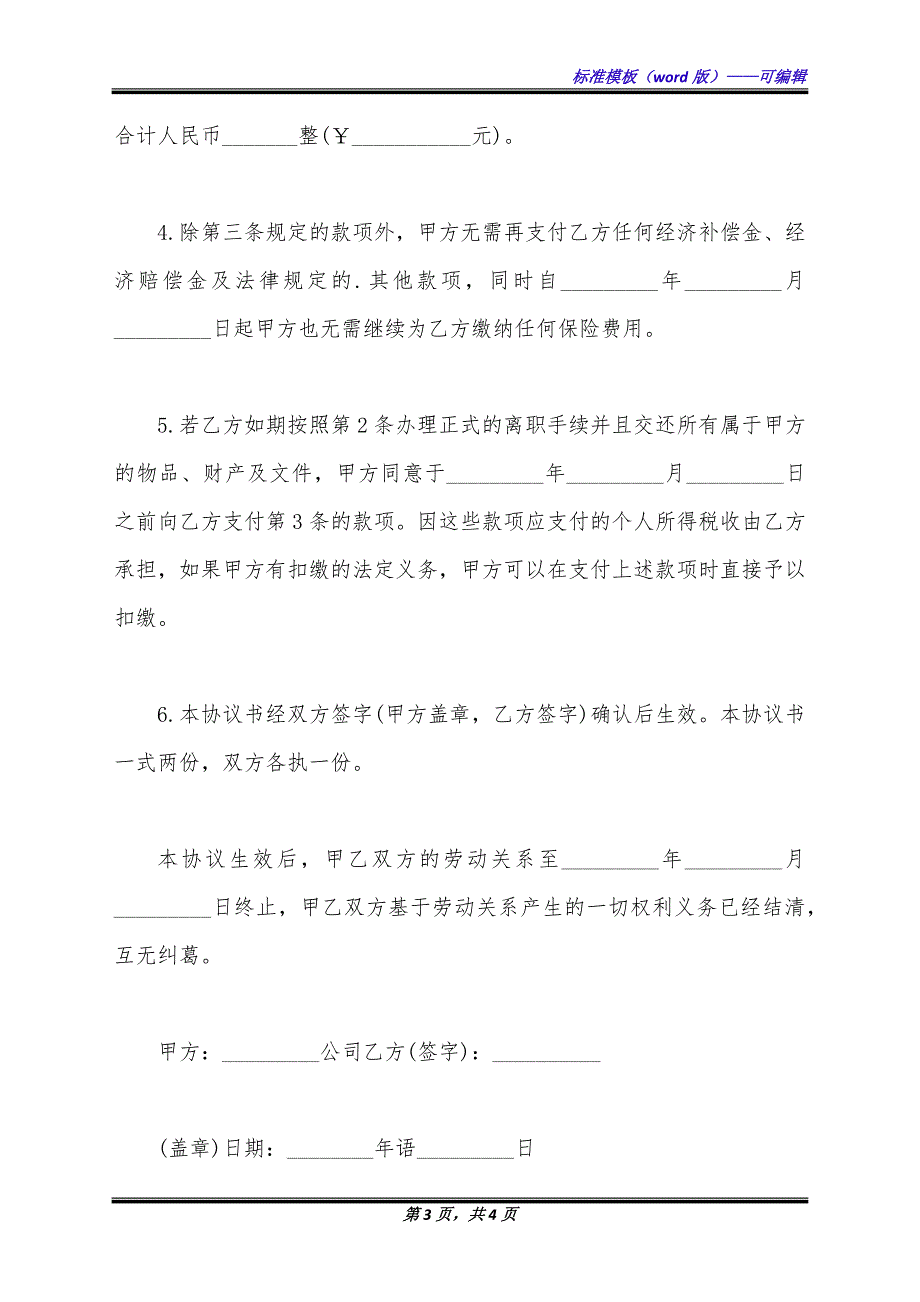 标准模板（word 版）——可编辑
合计人民币_______整(￥___________元)。
4.除第三条规定的款项外，甲方无需再支付乙方任何经济补偿金、经
济赔偿金及法律规定的.其他款项，同时自_________年_________月
_________日起甲方也无需继续为乙方缴纳任何保险费用。
5.若乙方如期按照第 2 条办理正式的离职手续并且交还所有属于甲方
的物品、财产及文件，甲方同意于_________年_________月_________日
之前向乙方支付第 3 条的款项。因这些款项应支付的个人所得税收由乙方
承担，如果甲方有扣缴的法定义务，甲方可以在支付上述款项时直接予以
扣缴。
6.本协议书经双方签字(甲方盖章，乙方签字)确认后生效。本协议书
一式两份，双方各执一份。
本协议生效后，甲乙双方的劳动关系至_________年_________月
_________日终止，甲乙双方基于劳动关系产生的一切权利义务已经结清，
互无纠葛。
甲方：_________公司乙方(签字)：__________
(盖章)日期：________年语_________日
第 3 页，共 4 页